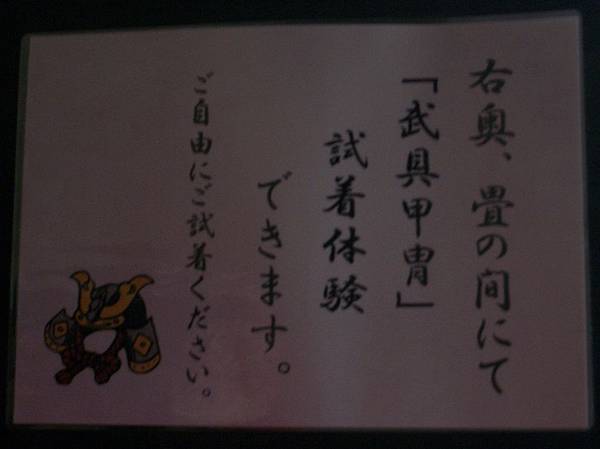 右奥、畳の間にて
「武具甲冑」
試着体験
できます。
ご自由にご試着ください。